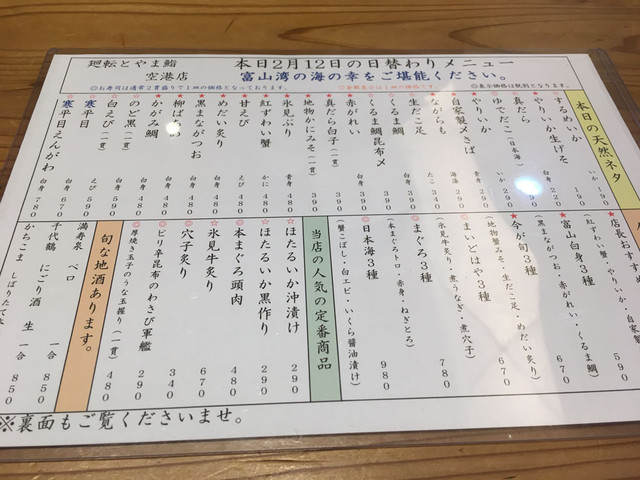 廻転とやま鮨
空港店
本日2月12日の日替わりメニュー
富山湾の海の幸をご堪能ください。
◎お寿司は通常2貫盛りで1皿の価格となっております。
◎表示価格は税別となります。
本日の天然ネタ
するめいか 190
やりいか生げそ
真だら 白身 220
ゆでだこ(日本海)
やりいか
自家製〆さば
ながらも たこ 340
生だこ足
くるま鯛
くるま鯛昆布〆
赤がれい
真だら白子(一貫) 390
地物かにみそ(一貫) 390
氷見ぶり 青身 480
紅ずわい蟹 かに 480
甘えび えび 480
めだい炙り 白身 480
黒まながつお 白身 480
柳ばちめ
かがみ鯛
のど黒(一貫)
白えび(一貫)
寒平目 白身 670
寒平目えんがわ 白身 780
店長おすすめ
(紅ずわい蟹・やりいか・自家製
590
富山白身3種
(黒まながつお・赤がれい・くるま鯛)
670
今が旬3種
(地物蟹みそ・生だこ足・めだい炙り)
670
まいどはや3種
(氷見牛炙り・煮うなぎ・煮穴子)
780
まぐろ3種
(本まぐろトロ・赤身・ねぎとろ)
980
日本海3種
(蟹こぼし・白エビ・いくら醤油漬け)
当店の人気の定番商品
ほたるいか沖漬け 290
ほたるいか黒作り 290
本まぐろ頭肉 480
氷見牛炙り 670
穴子炙り 340
ピリ辛昆布のわさび軍艦 290
厚焼き玉子のうな玉握り(一貫) 290
旬な地酒あります。
満寿泉 ペロ 一合 850
千代鶴 にごり酒 生 一合 850
かちこま しぼりたて
※裏面もご覧くださいませ。